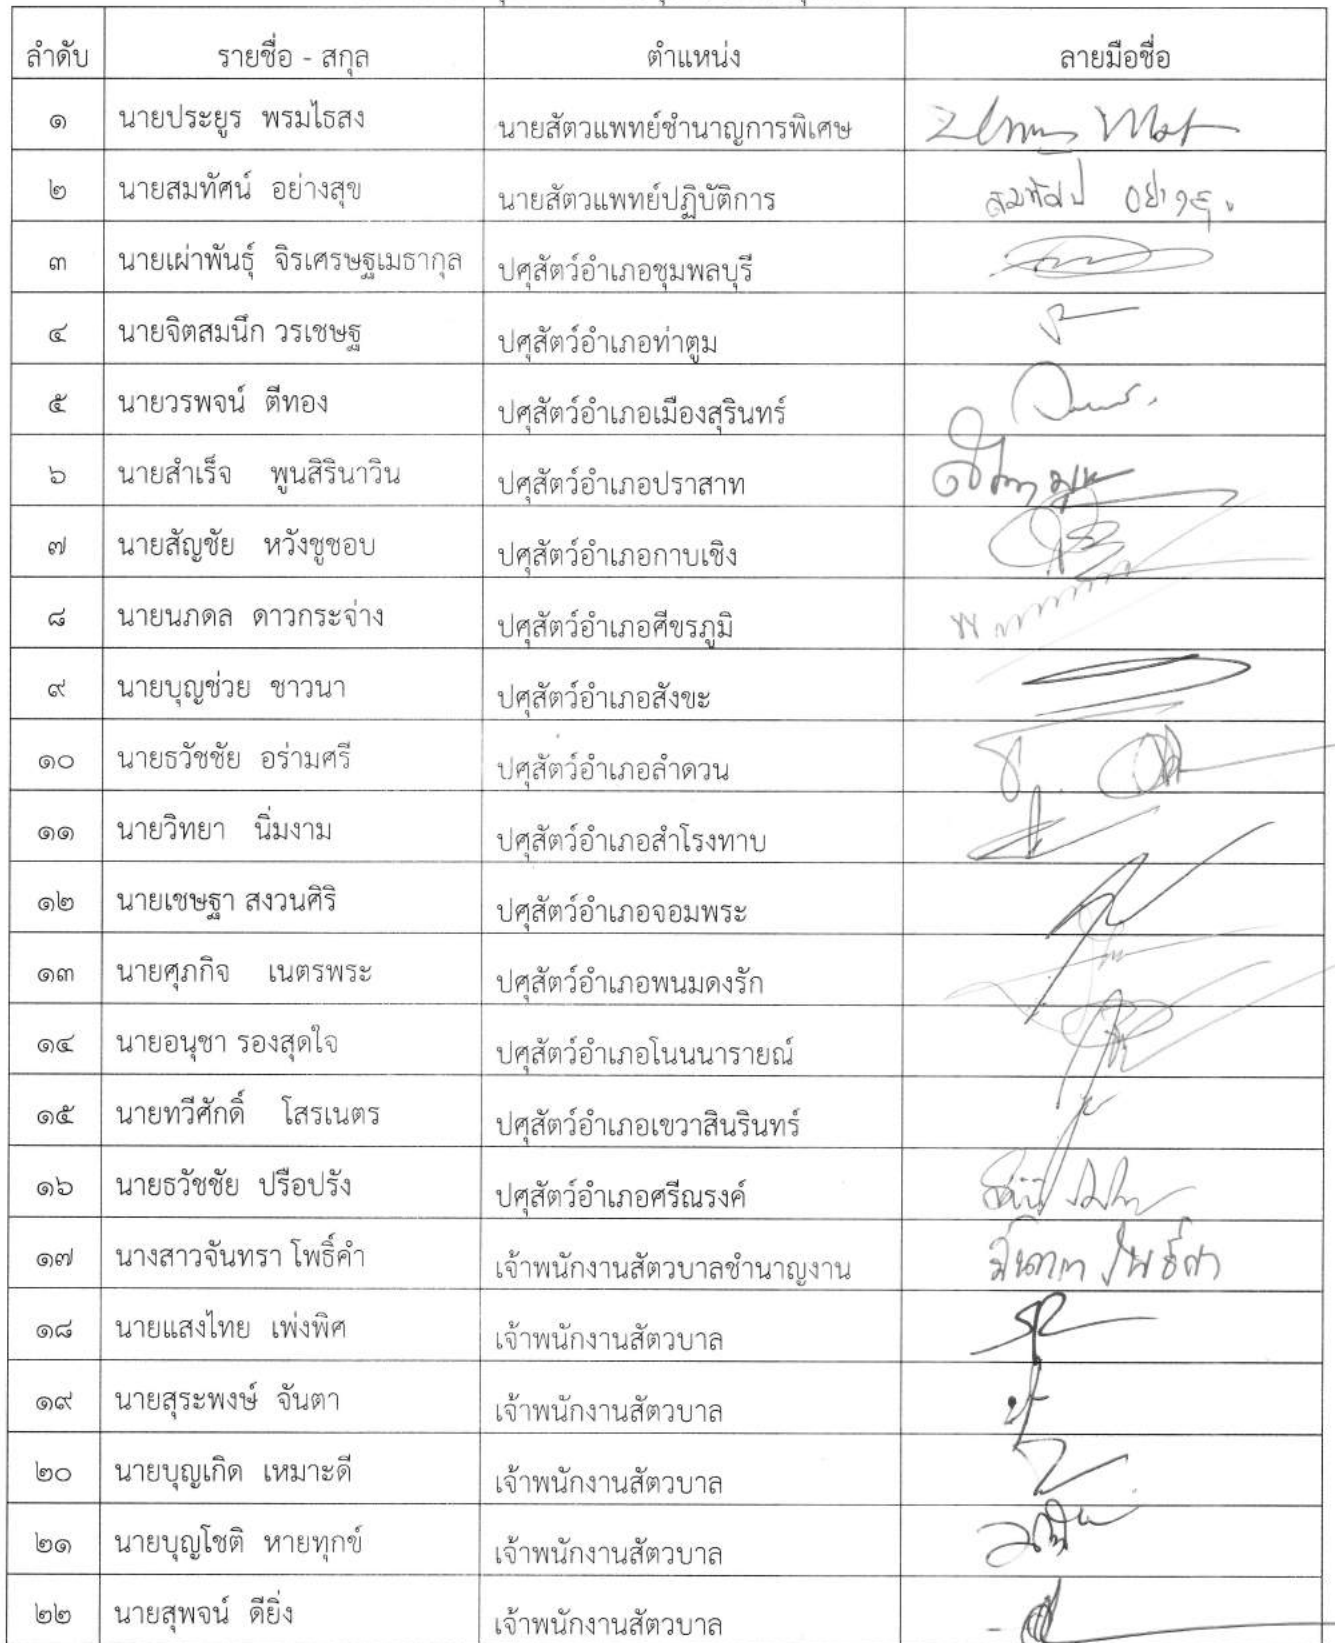 ลำดับ รายชื่อ - สกุล ตำแหน่ง ลายมือชื่อ
๑ นายประยูร พรมไธสง นายสัตวแพทย์ชำนาญการพิเศษ
๒ นายสมทัศน์ อย่างสุข นายสัตวแพทย์ปฏิบัติการ
๓ นายเผ่าพันธุ์ จิรเศรษฐเมธากุล ปศุสัตว์อำเภอชุมพลบุรี
๔ นายจิตสมนึก วรเชษฐ ปศุสัตว์อำเภอท่าตูม
๕ นายวรพจน์ ตีทอง ปศุสัตว์อำเภอเมืองสุรินทร์
๖ นายสำเร็จ พูนสิรินาวิน ปศุสัตว์อำเภอปราสาท
๗ นายสัญชัย หวังชูชอบ ปศุสัตว์อำเภอกาบเชิง
๘ นายนภดล ดาวกระจ่าง ปศุสัตว์อำเภอศีขรภูมิ
๙ นายบุญช่วย ชาวนา ปศุสัตว์อำเภอสังขะ
๑๐ นายธวัชชัย อร่ามศรี ปศุสัตว์อำเภอลำดวน
๑๑ นายวิทยา นิ่มงาม ปศุสัตว์อำเภอสำโรงทาบ
๑๒ นายเชษฐา สงวนศิริ ปศุสัตว์อำเภอจอมพระ
๑๓ นายศุภกิจ เนตรพระ ปศุสัตว์อำเภอพนมดงรัก
๑๔ นายอนุชา รองสุดใจ ปศุสัตว์อำเภอโนนนารายณ์
๑๕ นายทวีศักดิ์ โสรเนตร ปศุสัตว์อำเภอเขวาสินรินทร์
๑๖ นายธวัชชัย ปรือปรัง ปศุสัตว์อำเภอศรีณรงค์
๑๗ นางสาวจันทรา โพธิ์คำ เจ้าพนักงานสัตวบาลชำนาญงาน
๑๘ นายแสงไทย เพ่งพิศ เจ้าพนักงานสัตวบาล
๑๙ นายสุระพงษ์ จันตา เจ้าพนักงานสัตวบาล
๒๐ นายบุญเกิด เหมาะดี เจ้าพนักงานสัตวบาล
๒๑ นายบุญโชติ หายทุกข์ เจ้าพนักงานสัตวบาล
๒๒ นายสุพจน์ ดียิ่ง เจ้าพนักงานสัตวบาล